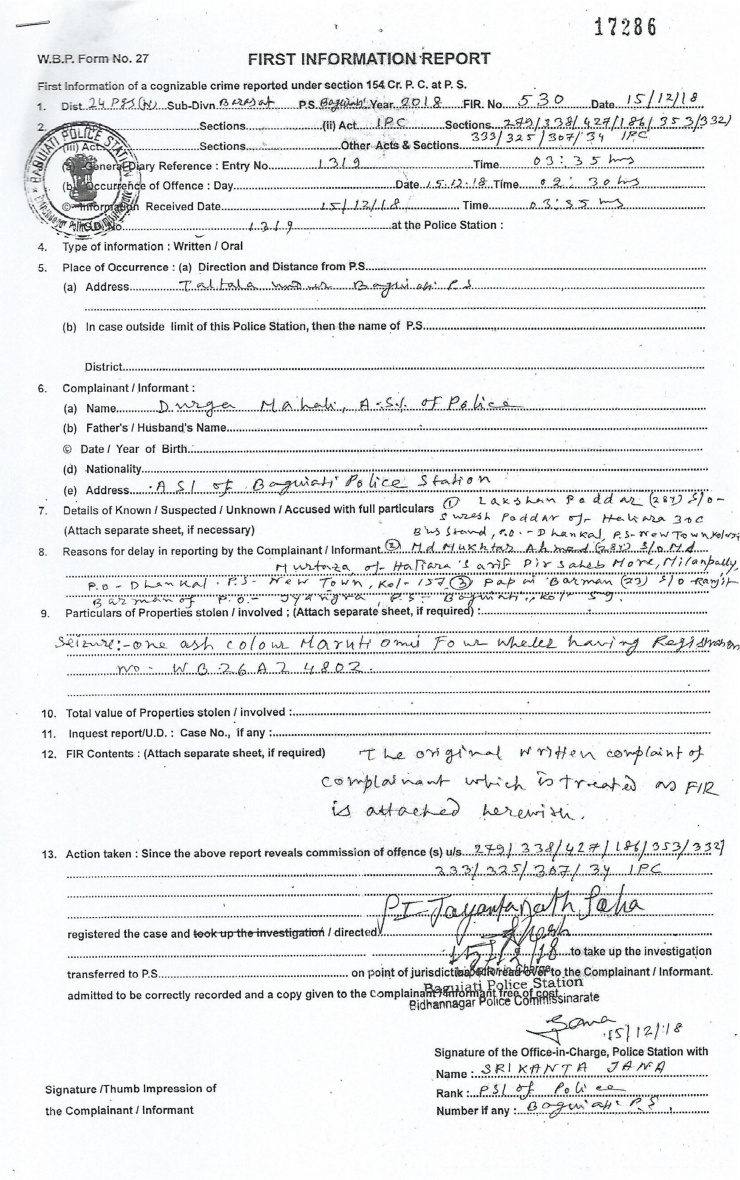 17286
W.B.P. Form No. 27
FIRST INFORMATION REPORT
First Information of a cognizable crime reported under section 154 Cr. P. C. at P. S.
1. Dist. 24 PGS(N) Sub-Divn Barasat P.S. Baguiati Year 2018 FIR. No. 530 Date 15/12/18
2. Sections (ii) Act IPC Sections 279/338/427/186/353/332/
(iii) Act Sections Other Acts & Sections 333/325/307/34 IPC
(a) General Diary Reference : Entry No. 1319 Time 03:35 hrs
(b) Occurrence of Offence : Day Date 15.12.18 Time 02:30 hrs
© Information Received Date 15/12/18 Time 03:35 hrs
No. 1319 at the Police Station :
BAGUIATI POLICE STATION
4. Type of information : Written / Oral
5. Place of Occurrence : (a) Direction and Distance from P.S.
(a) Address Taltala under Baguiati PS
(b) In case outside limit of this Police Station, then the name of P.S.
District
6. Complainant / Informant :
(a) Name Durga Mahali, A.S.I. of Police
(b) Father's / Husband's Name
© Date / Year of Birth
(d) Nationality
(e) Address ASI of Baguiati Police Station
7. Details of Known / Suspected / Unknown / Accused with full particulars ① Lakshan Poddar (28y) S/o-
Suresh Poddar of- Hatiara 30C
(Attach separate sheet, if necessary) Bus Stand, P.O.- Dhankal, P.S- New Town
8. Reasons for delay in reporting by the Complainant / Informant ② Md Mukhtar Ahmed (28y) S/o Md
Murtaza of- Hatiara Pir Saheb More, Milanpally,
P.O- Dhankal. P.S- New Town, Kol-157, ③ Papai Barman (23) S/o Ranjit
Barman of P.O- Jyangra P.S- Baguiati, Kol- 59.
9. Particulars of Properties stolen / involved ; (Attach separate sheet, if required) :
Seizure:- one ash colour Maruti omni Four wheeler having Registration
no- WB26AZ4802.
10. Total value of Properties stolen / involved :
11. Inquest report/U.D. : Case No., if any :
12. FIR Contents : (Attach separate sheet, if required) The original written complaint of
complainant which is treated as FIR
is attached herewith.
13. Action taken : Since the above report reveals commission of offence (s) u/s 279/338/427/186/353/332/
333/325/307/34 IPC
PI Jayantanath Saha
registered the case and took up the investigation / directed
15/12/18 to take up the investigation
transferred to P.S. on point of jurisdiction FIR read over to the Complainant / Informant.
admitted to be correctly recorded and a copy given to the Complainant / Informant free of cost.
Baguiati Police Station
Bidhannagar Police Commissinarate
15/12/18
Signature of the Office-in-Charge, Police Station with
Name : SRIKANTA JANA
Signature /Thumb Impression of
the Complainant / Informant
Rank : PSI of Police
Number if any : Baguiati P.S